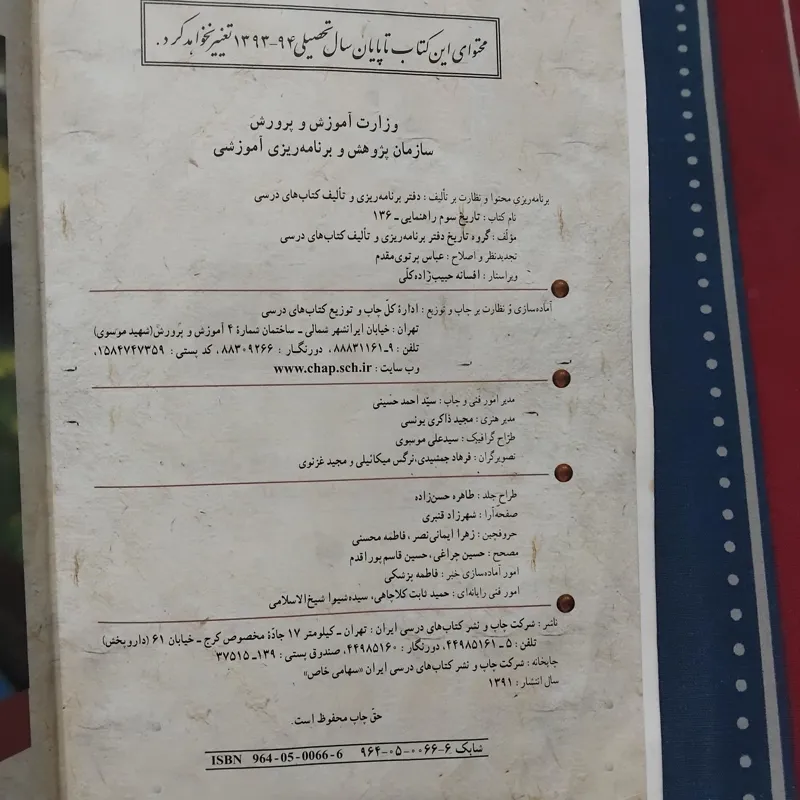 محتوای این کتاب تا پایان سال تحصیلی ۹۴-۱۳۹۳ تغییر نخواهد کرد.
وزارت آموزش و پرورش
سازمان پژوهش و برنامه‌ریزی آموزشی
برنامه‌ریزی محتوا و نظارت بر تألیف : دفتر برنامه‌ریزی و تألیف کتاب‌های درسی
نام کتاب : تاریخ سوم راهنمایی ـ ۱۳۶
مؤلف : گروه تاریخ دفتر برنامه‌ریزی و تألیف کتاب‌های درسی
تجدیدنظر و اصلاح : عباس پرتوی‌مقدم
ویراستار : افسانه حبیب‌زاده‌کلّی
آماده‌سازی و نظارت بر چاپ و توزیع : ادارهٔ کلّ چاپ و توزیع کتاب‌های درسی
تهران : خیابان ایرانشهر شمالی ـ ساختمان شمارهٔ ۴ آموزش و پرورش(شهید موسوی)
تلفن : ۹ـ۸۸۸۳۱۱۶۱، دورنگار : ۸۸۳۰۹۲۶۶، کد پستی : ۱۵۸۴۷۴۷۳۵۹،
وب سایت : www.chap.sch.ir
مدیر امور فنی و چاپ : سیّد احمد حسینی
مدیر هنری : مجید ذاکری یونسی
طرّاح گرافیک : سیدعلی موسوی
تصویرگران : فرهاد جمشیدی،نرگس میکائیلی و مجید غزنوی
طراح جلد : طاهره حسن‌زاده
صفحه‌آرا : شهرزاد قنبری
حروفچین : زهرا ایمانی‌نصر، فاطمه محسنی
مصحح : حسین چراغی، حسین قاسم‌پوراقدم
امور آماده‌سازی خبر : فاطمه پزشکی
امور فنی رایانه‌ای : حمید ثابت کلاچاهی، سیده‌شیوا شیخ‌الاسلامی
ناشر : شرکت چاپ و نشر کتاب‌های درسی ایران : تهران ـ کیلومتر ۱۷ جادّهٔ مخصوص کرج ـ خیابان ۶۱ (داروپخش)
تلفن : ۵ ـ ۴۴۹۸۵۱۶۱، دورنگار : ۴۴۹۸۵۱۶۰، صندوق پستی : ۱۳۹ـ ۳۷۵۱۵
چاپخانه : شرکت چاپ و نشر کتاب‌های درسی ایران «سهامی خاص»
سال انتشار : ۱۳۹۱
حقّ چاپ محفوظ است.
شابک ۶-۰۰۶۶-۰۵-۹۶۴ ISBN 964-05-0066-6